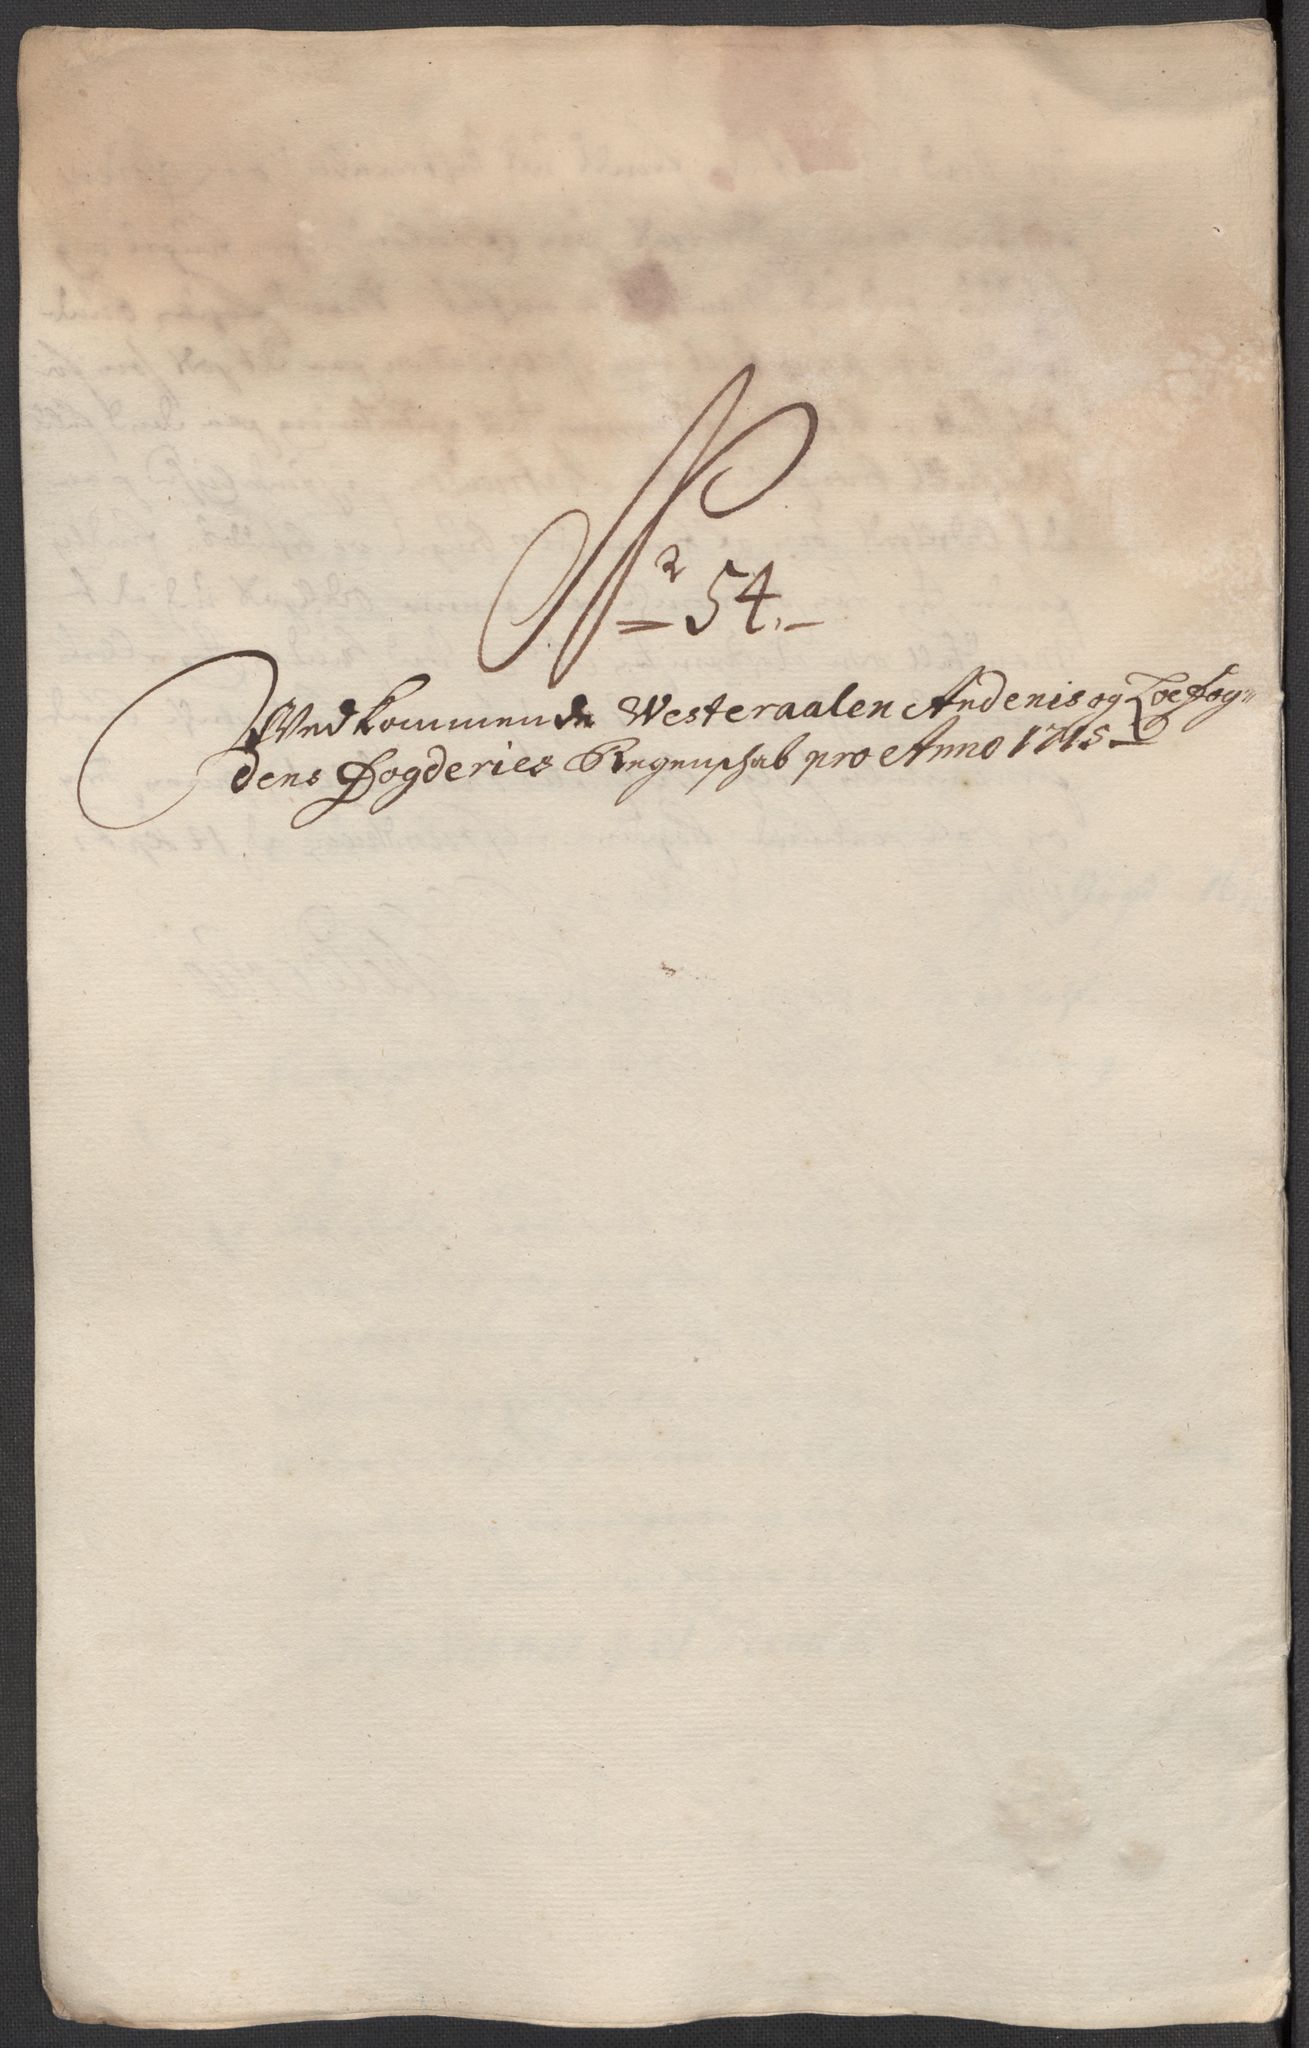 No 54.
Wedkommende Westeraalen Andenis og Loefog-
dens Fogderies Regenschab pro Anno 1715